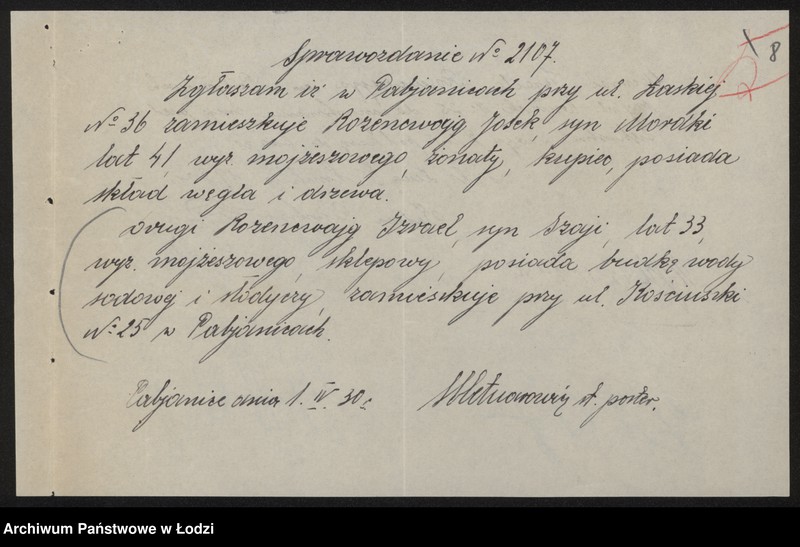 8
Sprawozdanie № 2107.
Zgłaszam iż w Pabjanicach przy ul. Łaskiej
№ 36 zamieszkuje Rozencwajg Josek, syn Mordki
lat 41, wyz. mojżeszowego, żonaty, kupiec, posiada
skład węgla i drzewa.
drugi Rozencwajg Izrael, syn Szaji, lat 33,
wyz. mojżeszowego, sklepowy, posiada budkę wody
sodowej i słodyczy, zamieszkuje przy ul. Kościuszki
№ 25 w Pabjanicach.
Pabjanice dnia 1. IV. 30 r. st. poster.
Archiwum Państwowe w Łodzi